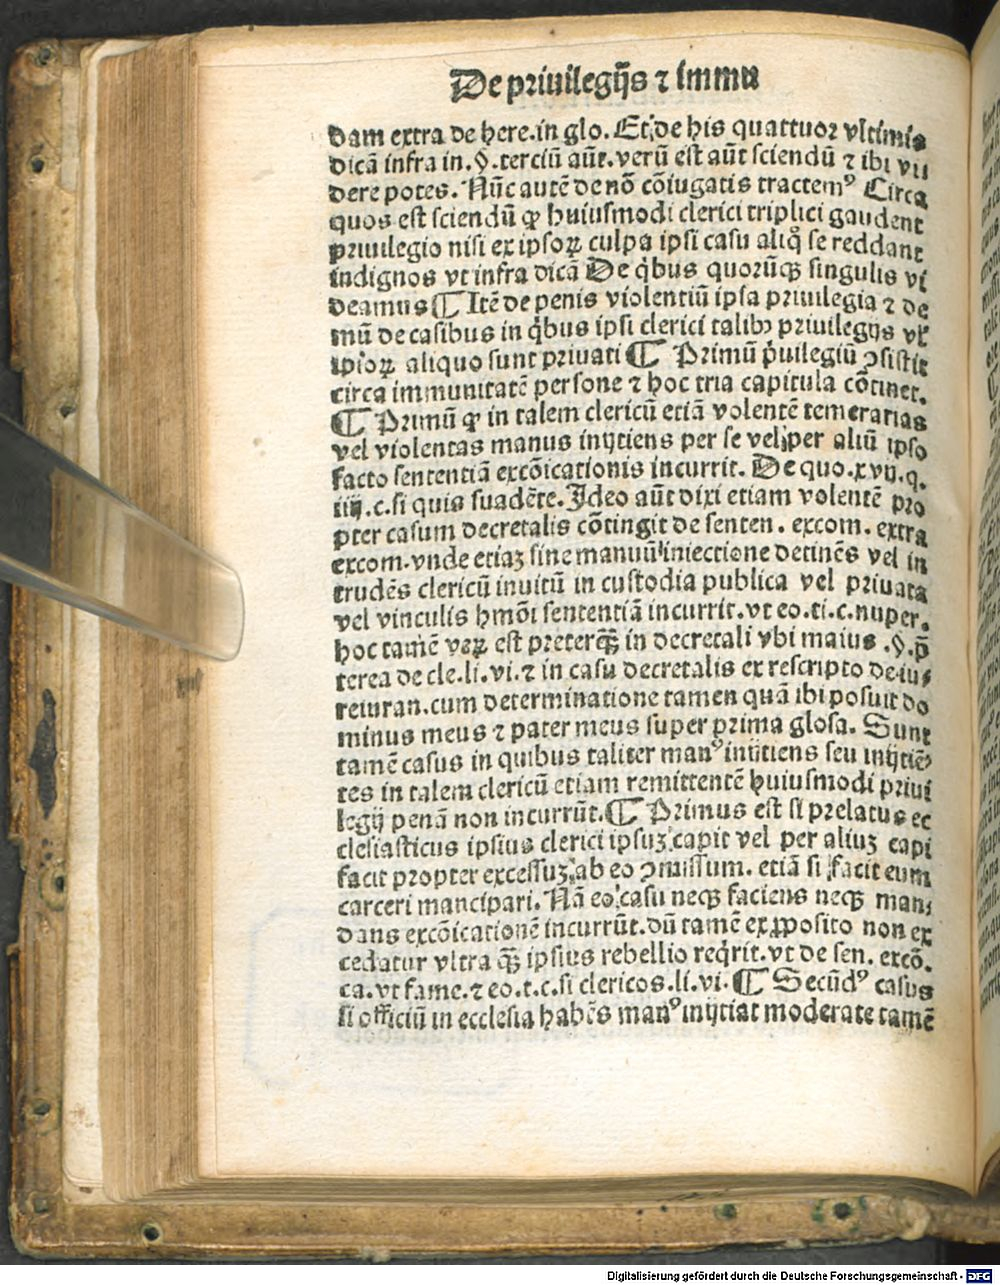 De priuilegijs ⁊ immu
dam extra de here.in glo. Et de his quattuor vltimis
dicā infra in.§.terciū aūt.verū est aūt sciendū ⁊ ibi vi
dere potes. Nūc autē de nō cōiugatis tractemꝰ Circa
quos est sciendū ꝙ huiusmodi clerici triplici gaudent
priuilegio nisi ex ipsoꝝ culpa ipsi casu aliq̊ se reddant
indignos vt infra dicā De q̇bus quorūcꝙ singulis vi
deamus ¶ Itē de penis violentiū ipsa priuilegia ⁊ de
mū de casibus in q̇bus ipsi clerici talibꝫ priuilegijs vł
ipsoꝝ aliquo sunt priuati ¶ Primū p̄uilegiū ꝯsistit
circa immunitatē persone ⁊ hoc tria capitula cōtinet.
¶ Primū ꝙ in talem clericū etiā volentē temerarias
vel violentas manus inijtiens per se vel per aliū ipso
facto sententiā excōicationis incurrit. De quo.xvij.q.
iiij.c.si quis suadēte. Ideo aūt dixi etiam volentē pro
pter casum decretalis cōtingit de senten. excom. extra
excom.vnde etiaꝫ sine manuū iniectione detinēs vel in
trudēs clericū inuitū in custodia publica vel priuata
vel vinculis hmōi sententiā incurrit.vt eo.ti.c.nuper.
hoc tamē veꝝ est preterꝙ̄ in decretali vbi maius .§.p̄
terea de cle.li.vi.⁊ in casu decretalis ex rescripto de iu⸗
reiuran.cum determinatione tamen quā ibi posuit do
minus meus ⁊ pater meus super prima glosa. Sunt
tamē casus in quibus taliter manꝰ inijtiens seu inijtiē⸗
tes in talem clericū etiam remittentē huiusmodi priui
legij penā non incurrūt. ¶ Primus est si prelatus ec
clesiasticus ipsius clerici ipsuꝫ capit vel per aliuꝫ capi
facit propter excessuꝫ ab eo ꝯmissum. etiā si facit eum
carceri mancipari. Nā eo casu necꝙ faciens necꝙ man⸗
dans excōicationē incurrūt.dū tamē ex ꝓposito non ex
cedatur vltra ꝙ̄ ipsius rebellio req̇rit.vt de sen. excō.
ca.vt fame.⁊ eo.t.c.si clericos.li.vi. ¶ Secūdꝰ casus
si officiū in ecclesia habēs manꝰ inijtiat moderate tamē
Digitalisierung gefördert durch die Deutsche Forschungsgemeinschaft - DFG